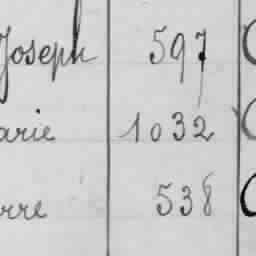 Joseph 597
arie 1032
rre 538